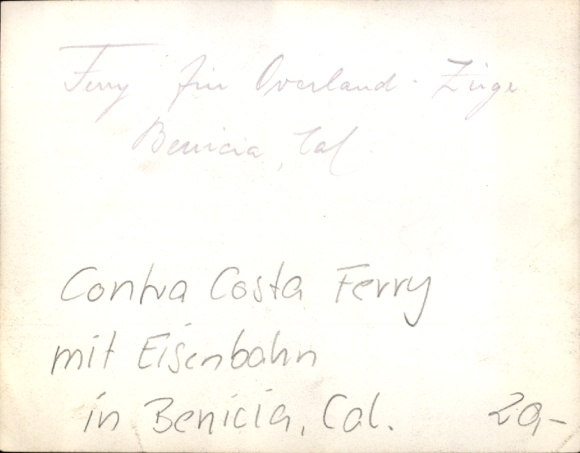 Ferry für Overland-Züge
Benicia, Cal.
Contra Costa Ferry
mit Eisenbahn
in Benicia, Cal. 20,-